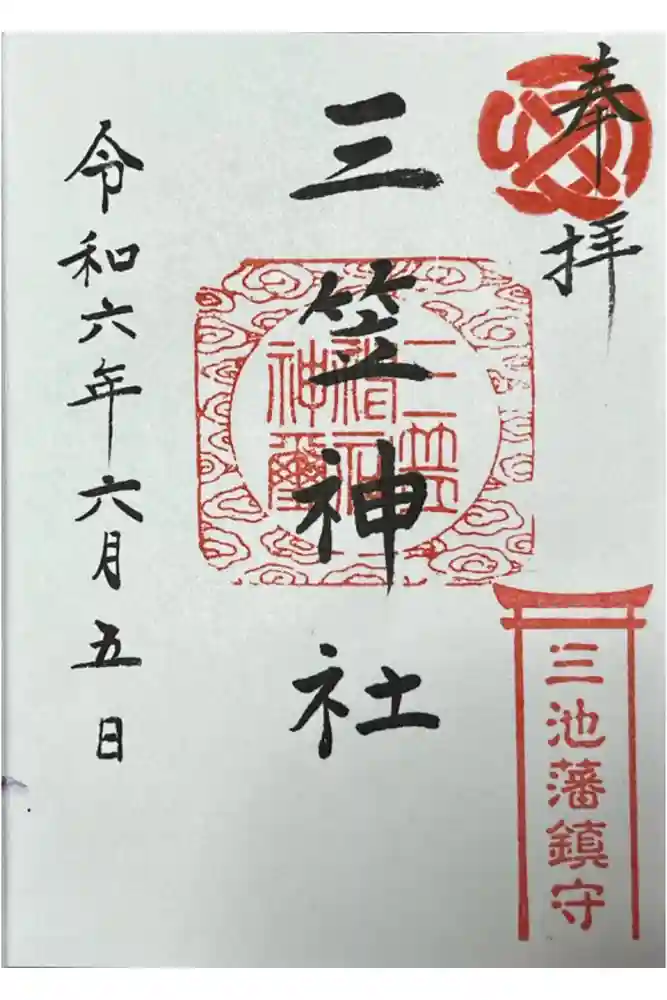 奉拝
三笠神社
三笠
神社
神璽
三池藩鎮守
令和六年六月五日